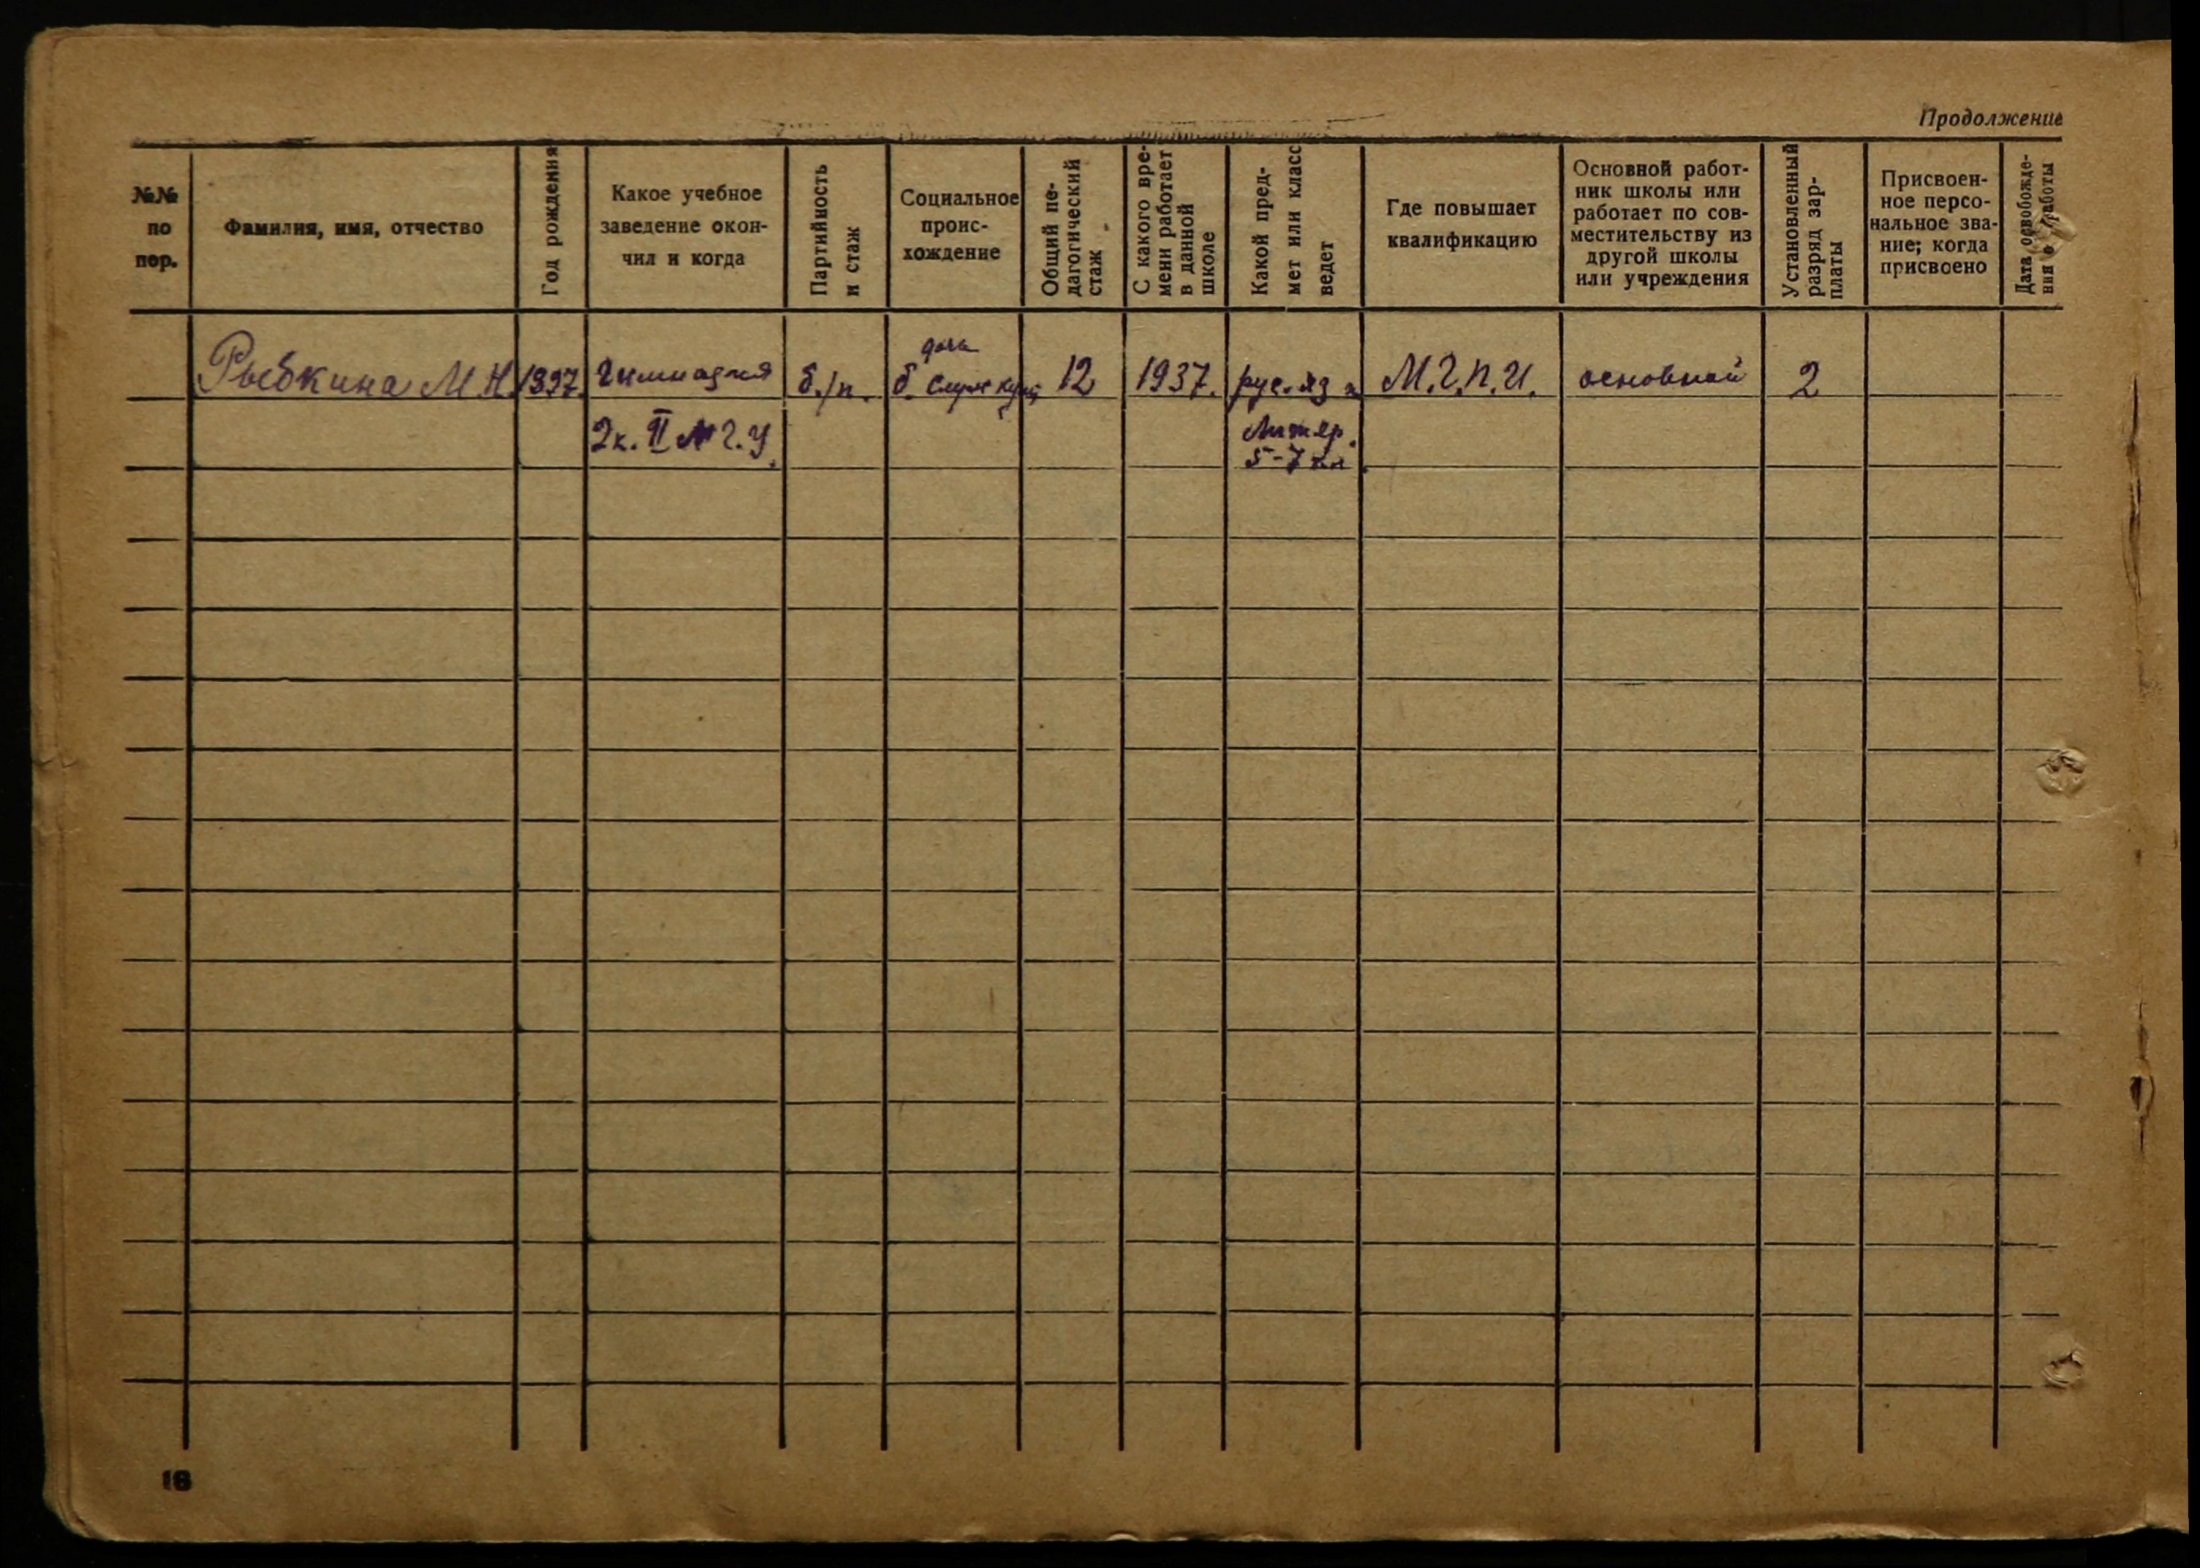 Продолжение
№№
по
пор.
Фамилия, имя, отчество
Год рождения
Какое учебное
заведение окон-
чил и когда
Партийность
и стаж
Социальное
проис-
хождение
Общий пе-
дагогический
стаж
С какого вре-
мени работает
в данной
школе
Какой пред-
мет или класс
ведет
Где повышает
квалификацию
Основной работ-
ник школы или
работает по сов-
местительству из
другой школы
или учреждения
Установленный
разряд зар-
платы
Присвоен-
ное персо-
нальное зва-
ние; когда
присвоено
Дата освобожде-
ния от работы
Рыбкина М.Н.
1897.
Гимназия
2к. II МГ.У.
б./п.
дочь
б. служащ
12
1937.
рус. яз и
Литер.
5-7 кл.
М.Г.П.И.
основной
2
16